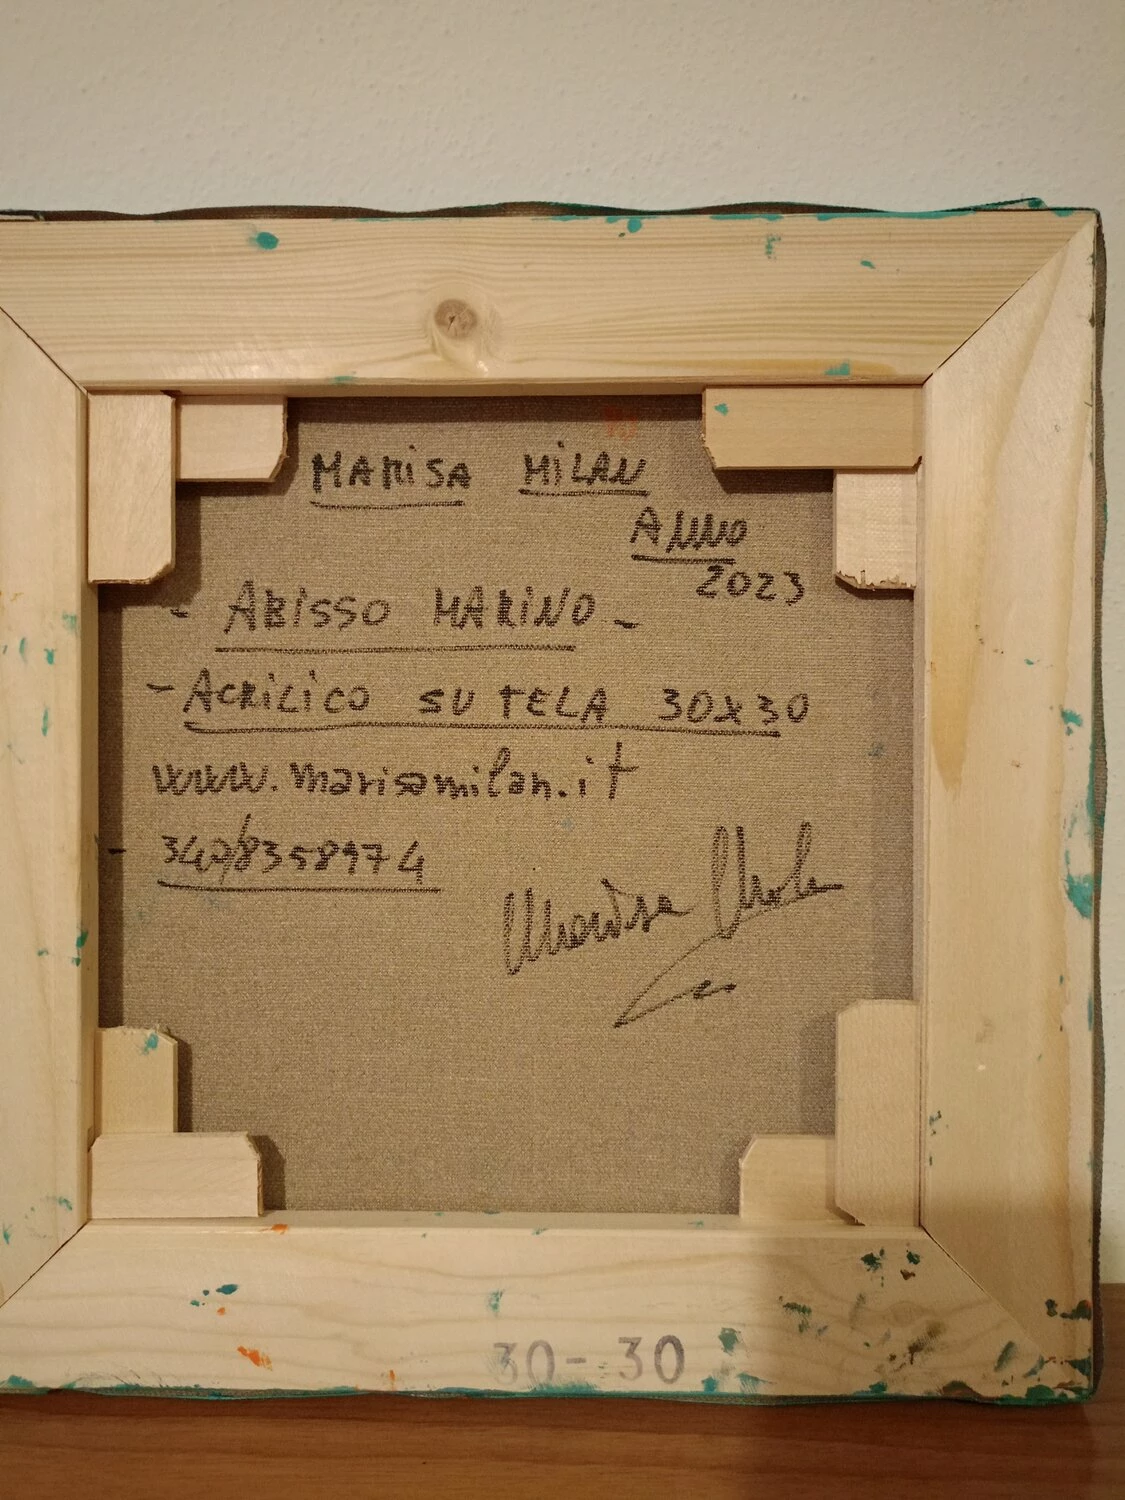 MARISA MILAN
ANNO
2023
- ABISSO MARINO -
- ACRILICO SU TELA 30x30
www.marisamilan.it
- 340/8358974
Marisa Milan
30-30